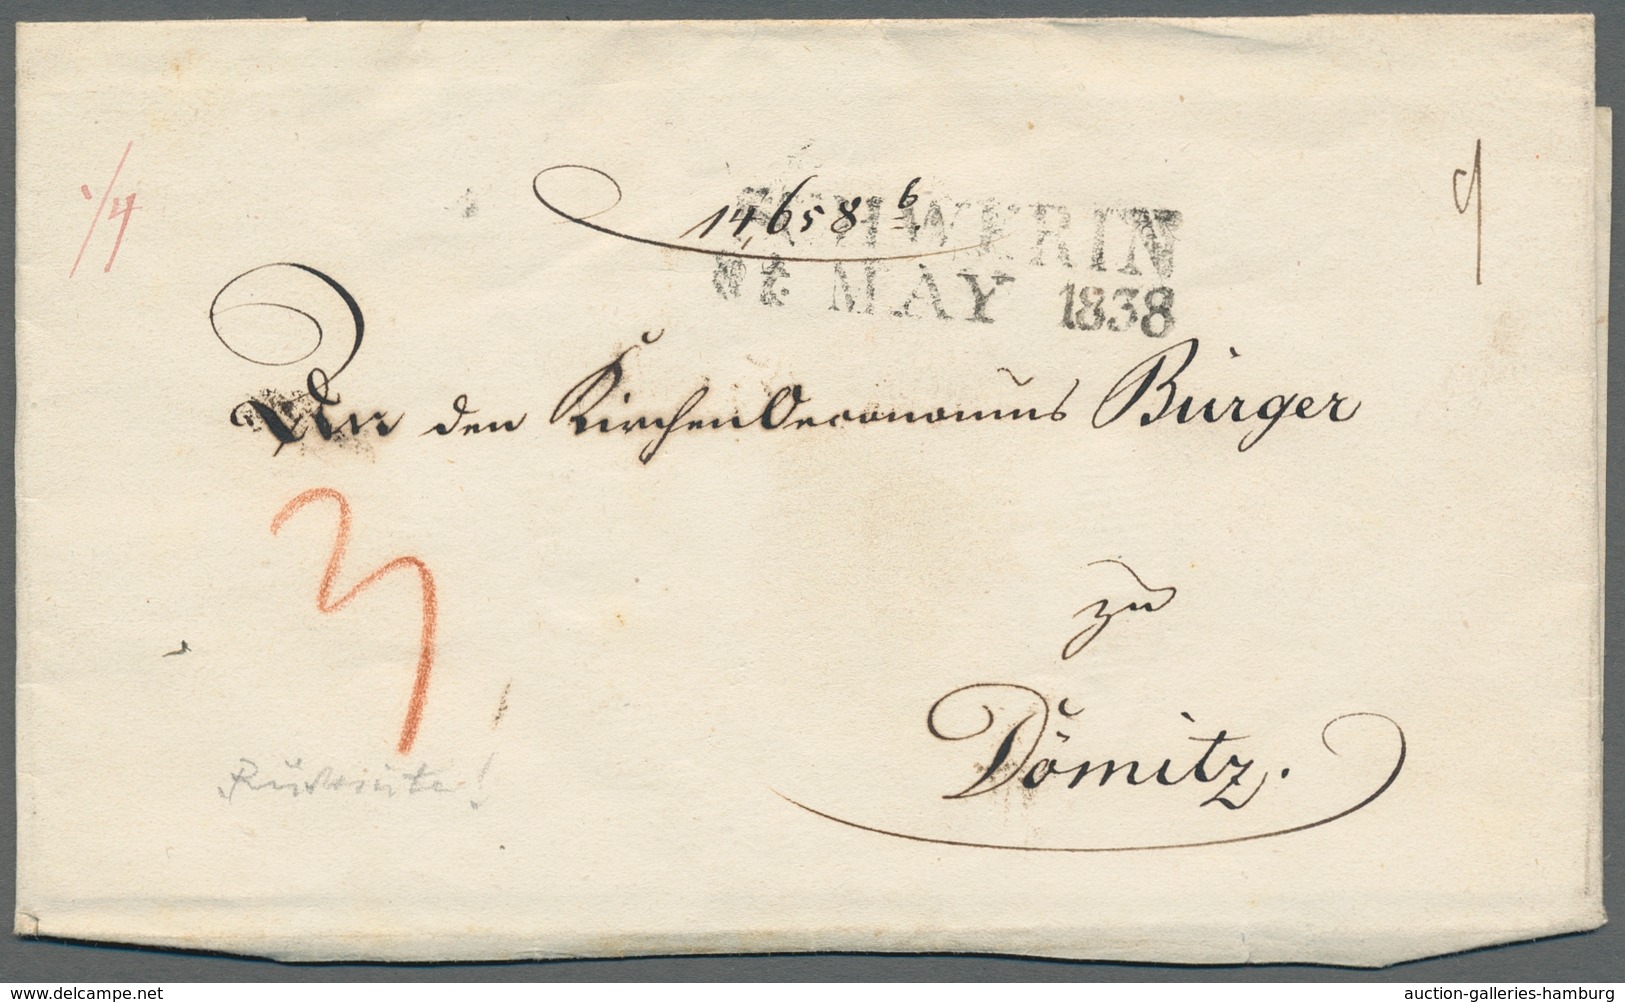 1/4
14,658 b
SCHWERIN
MAY 1838
An den Kirchen Oeconomus Bürger
3
zu
Dömitz.
www.delcampe.net
auction-galleries-hamburg